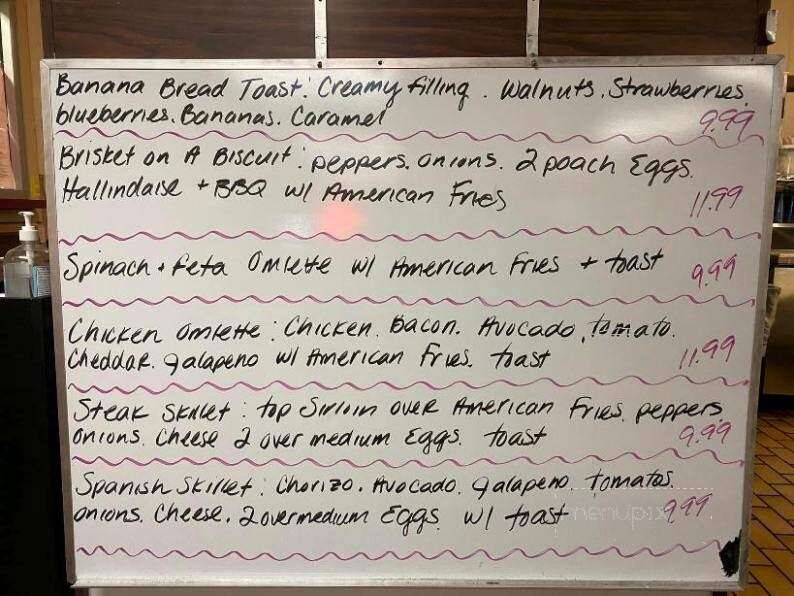 Banana Bread Toast: Creamy filling. Walnuts. Strawberries.
blueberries. Bananas. Caramel
9.99
Brisket on A Biscuit: peppers. onions. 2 poach Eggs.
Hallindaise + BBQ w/ American Fries
11.99
Spinach + feta Omlette w/ American Fries + toast
9.99
Chicken omlette: Chicken. Bacon. Avocado. tomato.
Cheddar. Jalapeno w/ American Fries. toast
11.99
Steak Skillet: top Sirloin over American Fries. peppers.
onions. Cheese 2 over medium Eggs. toast
9.99
Spanish Skillet: Chorizo. Avocado. Jalapeno. tomatos.
onions. Cheese. 2 overmedium Eggs w/ toast
9.99
menupix